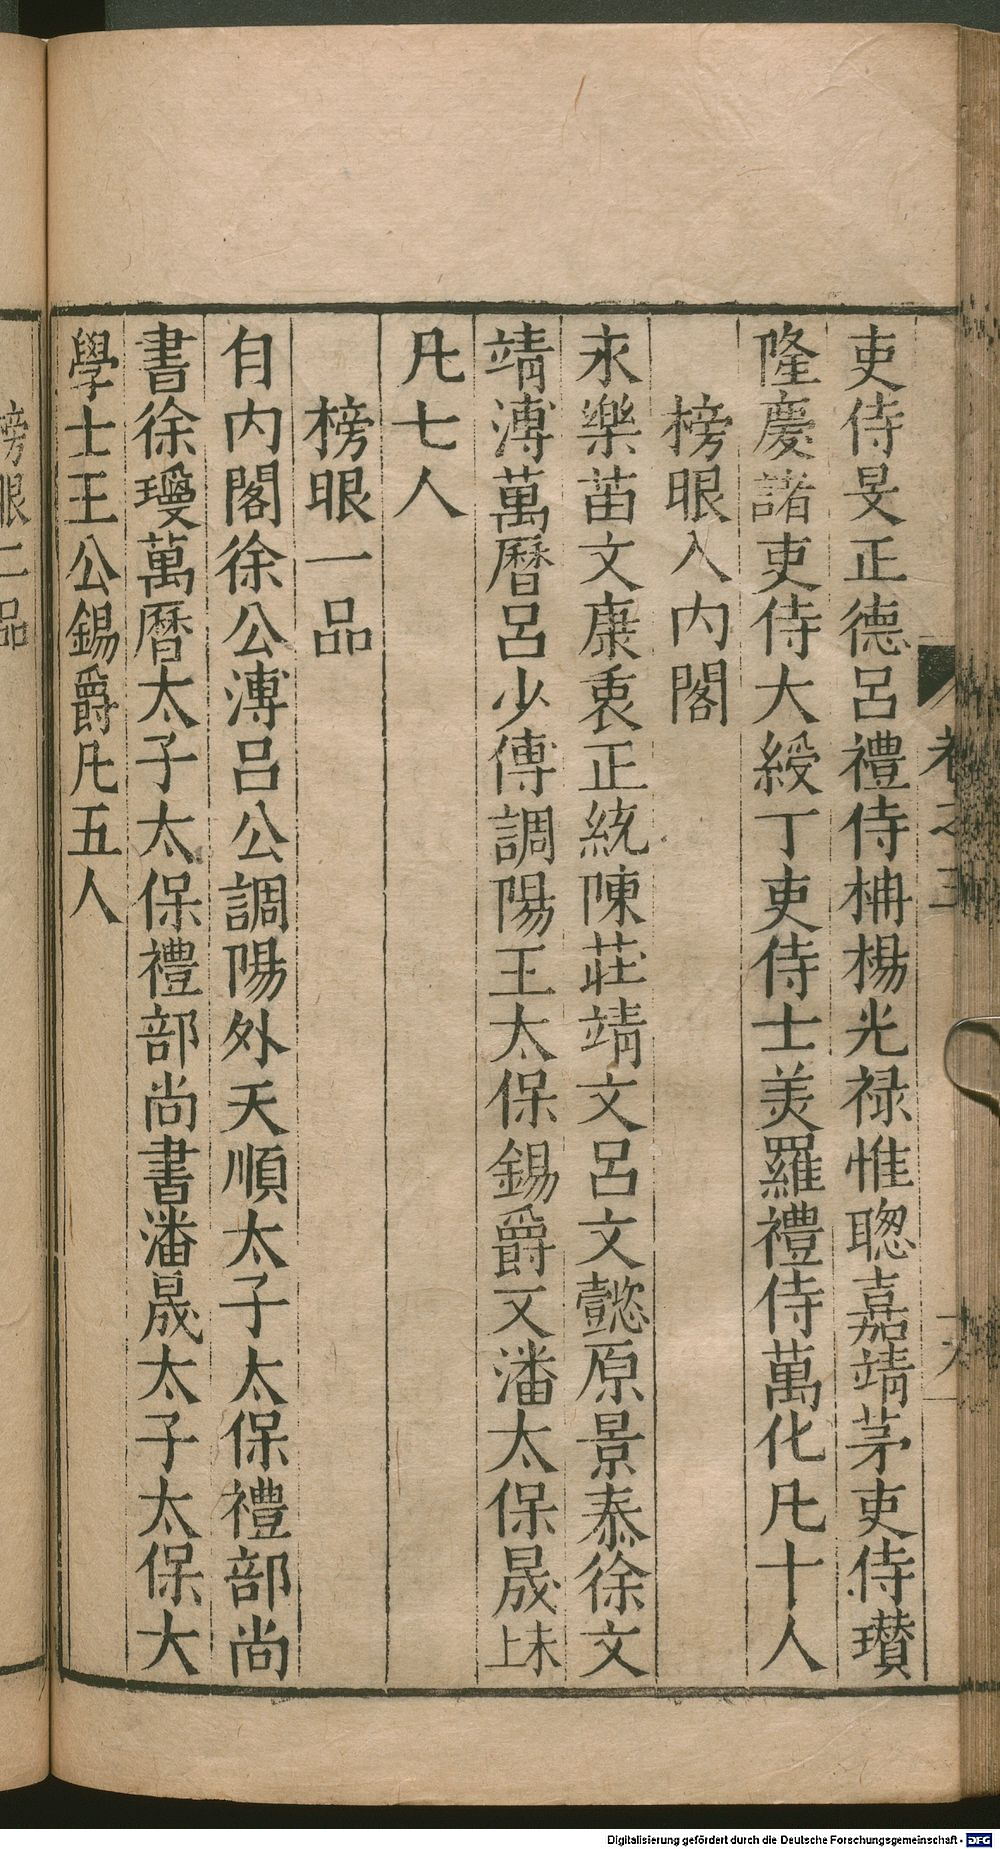 吏侍旻正德呂禮侍柟楊光禄惟聰嘉靖茅吏侍瓚
隆慶諸吏侍大綬丁吏侍士美羅禮侍萬化凡十人
榜眼入内閣
永樂苗文康衷正統陳莊靖文呂文懿原景泰徐文
靖溥萬曆呂少傅調陽王太保錫爵又潘太保晟未上
凡七人
榜眼一品
自内閣徐公溥呂公調陽外天順太子太保禮部尚
書徐瓊萬曆太子太保禮部尚書潘晟太子太保大
學士王公錫爵凡五人
榜眼二品
卷之三
Digitalisierung gefördert durch die Deutsche Forschungsgemeinschaft - DFG